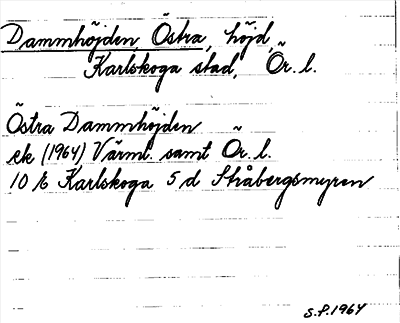 Dammhöjden, Östra, höjd,
Karlskoga stad, Ör. l.
Östra Dammhöjden
ek (1964) Värml. samt Ör. l.
10 E Karlskoga 5 d Stråbergsmyren
S.P. 1964